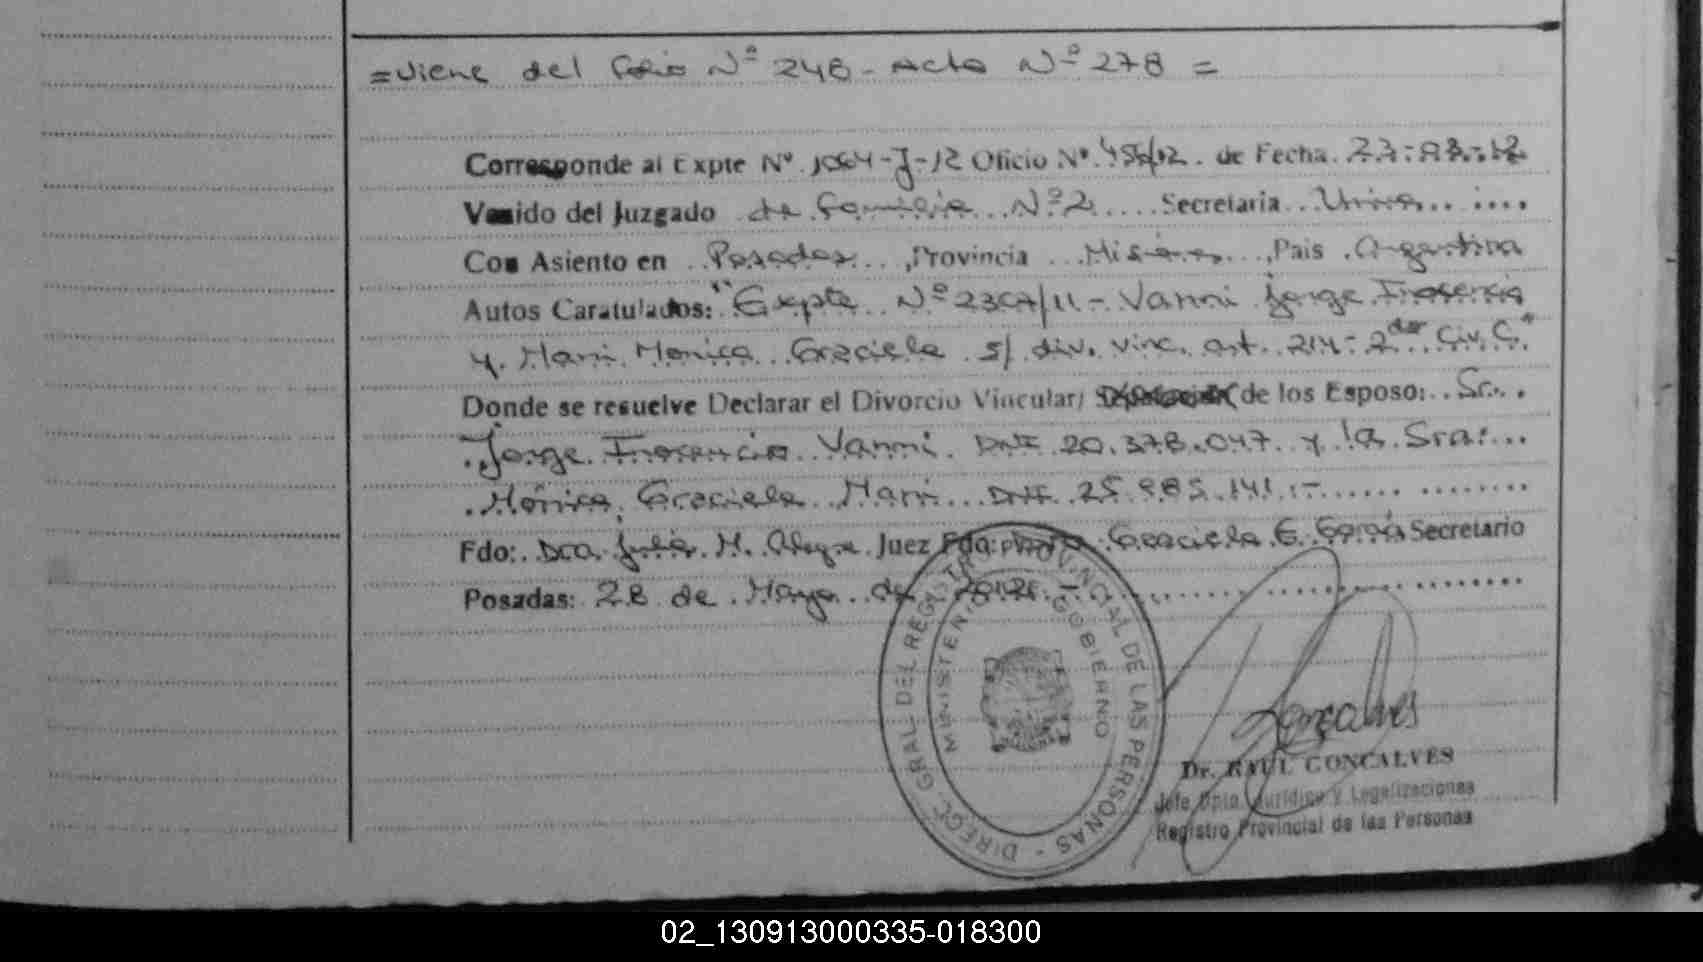 =Viene del folio Nº 248 - Acta Nº 278 =
Corresponde al Expte Nº 1064-J-12 Oficio Nº 455/12 de Fecha 23-03-12
Venido del Juzgado de Familia Nº 2 Secretaria Unica
Con Asiento en Posadas, Provincia Misiones, Pais Argentina
Autos Caratulados: "Expte Nº 2367/11 - Vanni Jorge
y Marri Monica Graciela s/ div. vinc. art. 214-2do Civ. C."
Donde se resuelve Declarar el Divorcio Vincular/ de los Esposo: Sr.
Jorge Vanni DNI 20.378.047 y la Sra:
Mónica Graciela Marri DNI 25.985.141.-
Fdo: Dra. Julia M. Juez Fdo: Graciela E. Secretario
Posadas: 28 de Mayo de 2012.-
DIRECC. GRAL. DEL REGISTRO PROVINCIAL DE LAS PERSONAS -
MINISTERIO GOBIERNO
Gonçalves
Dr. RAUL GONCALVES
Jefe Dpto. Jurídico y Legalizaciones
Registro Provincial de las Personas
02_130913000335-018300